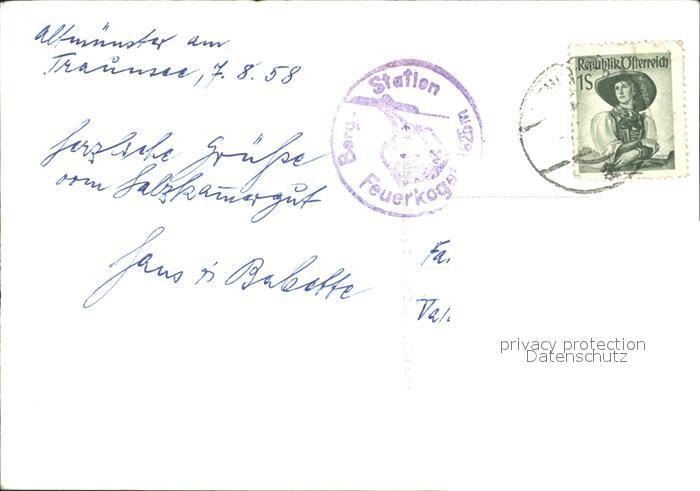 Altmünster am
Traunsee, 7. 8. 58
Herzliche Grüße
vom Salzkammergut
Hans u Babette
Station
Berg-
Feuerkogel
Republik Österreich
1S
Fa.
privacy protection
Datenschutz